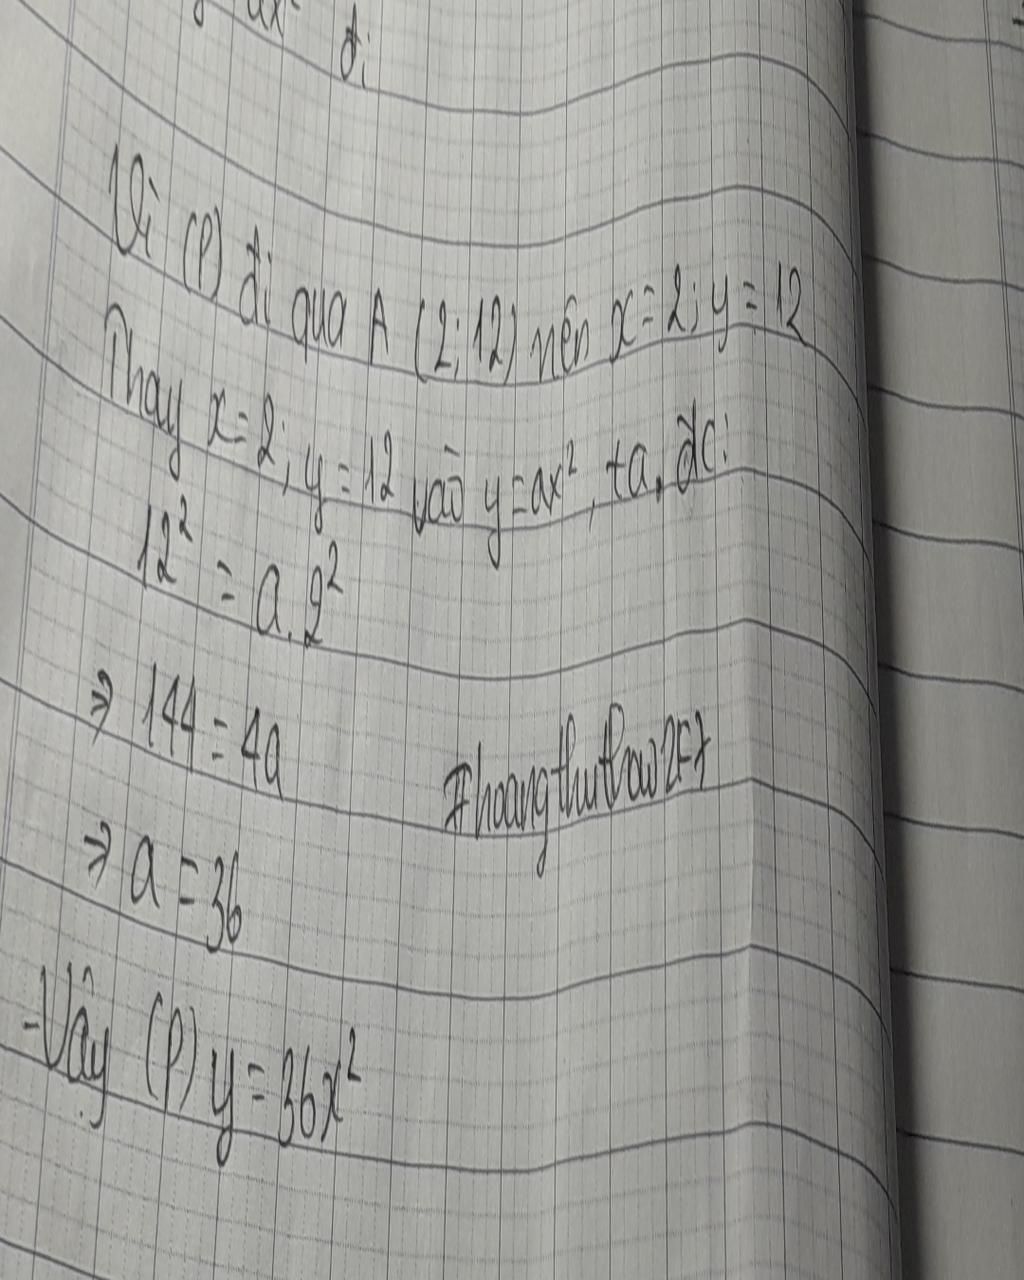 ax² đi
Vì (P) đi qua A (2;12) nên x=2; y=12
Thay x=2; y=12 vào y=ax², ta đc:
12² = a.2²
⇒ 144=4a
⇒ a=36
-Vậy (P) y=36x²